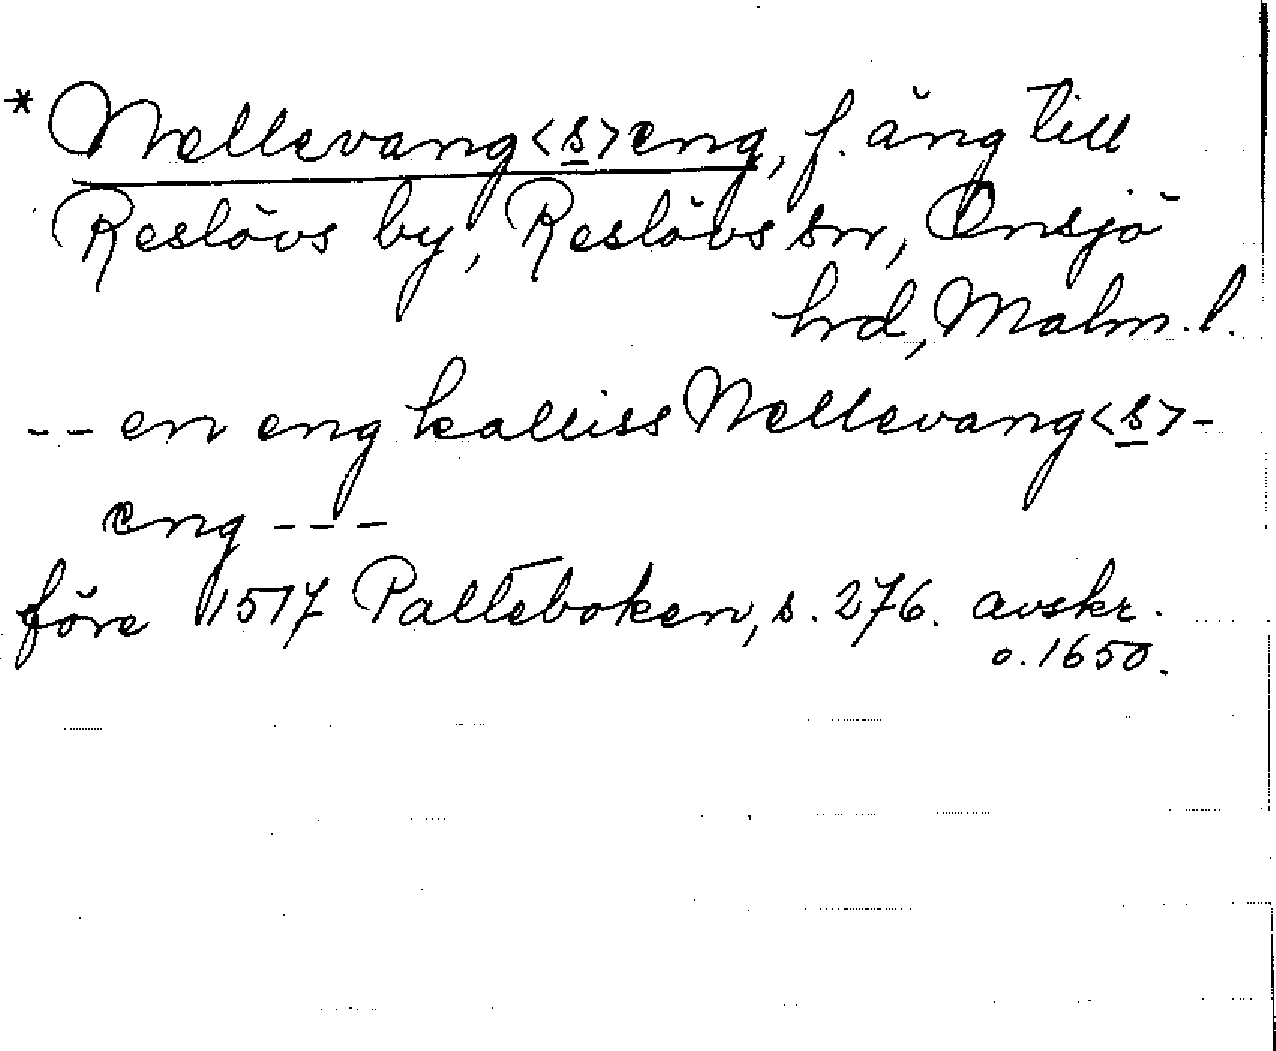 * Nellevang<s>eng, f. äng till
Reslövs by, Reslövs sn, Onsjö
hrd, Malm. l.
-- en eng kalliss Nellevang<s>-
eng ---
före 1517 Palteboken, s. 276. avskr.
o. 1650.